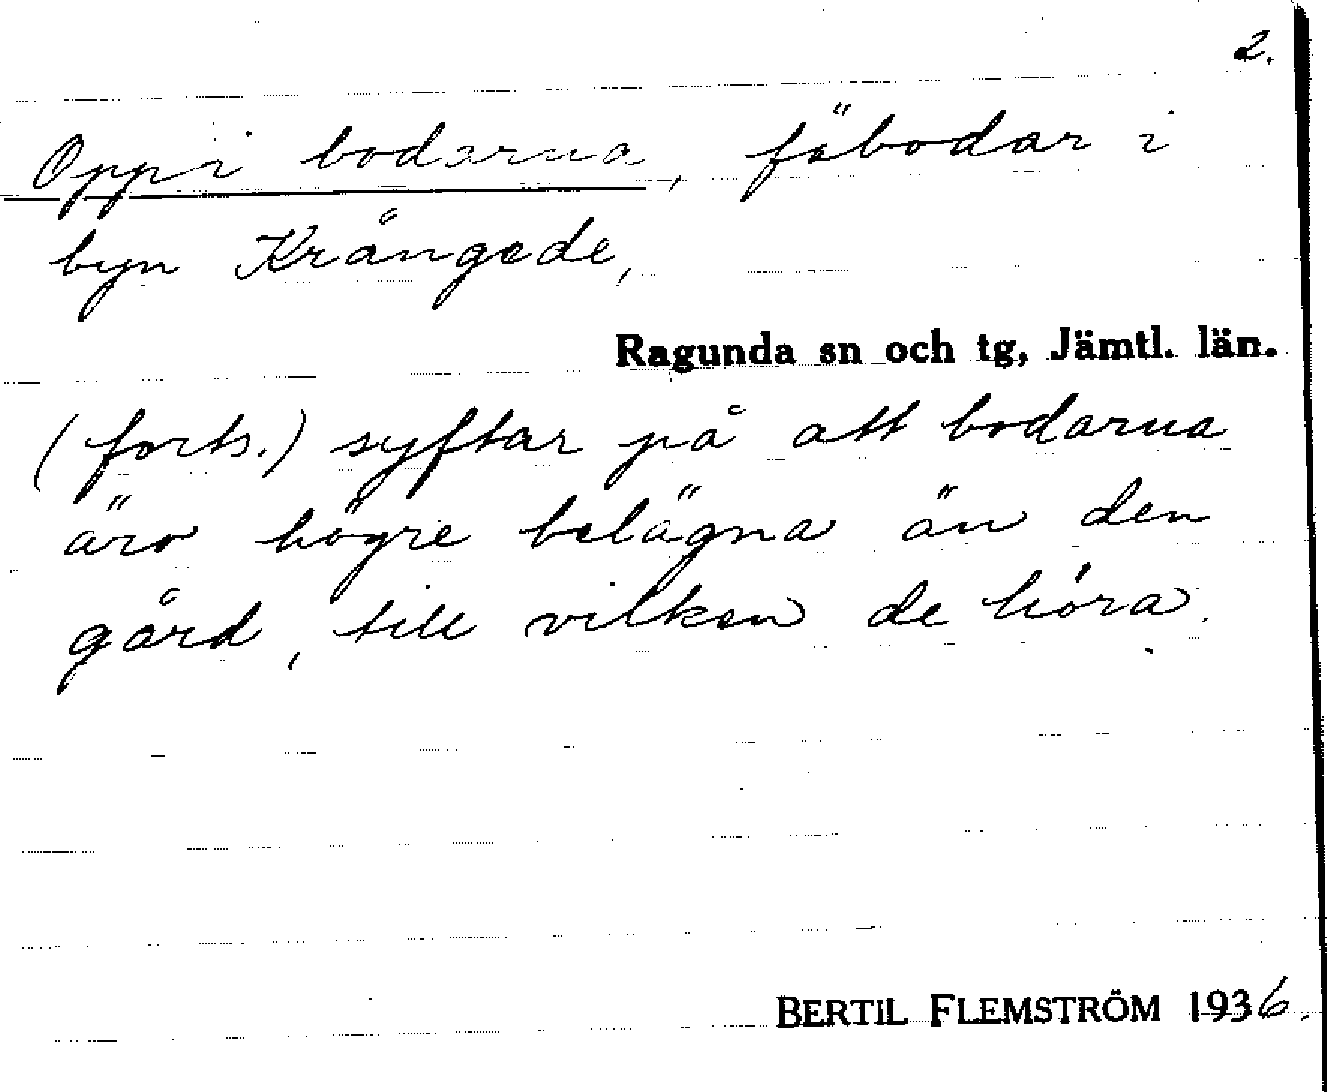 2.
Oppi bodarna, fäbodar i
byn Krångede,
Ragunda sn och tg, Jämtl. län.
(forts.) syftar på att bodarna
äro högre belägna än den
gård, till vilken de höra.
BERTIL FLEMSTRÖM 1936.